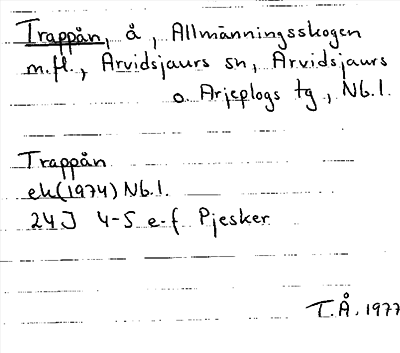 Trappån, å, Allmänningsskogen
m.fl., Arvidsjaurs sn, Arvidsjaurs
o. Arjeplogs tg, Nb.l.
Trappån
ek(1974) Nb.l.
24J 4-5 e-f Pjesker
T.Å. 1977